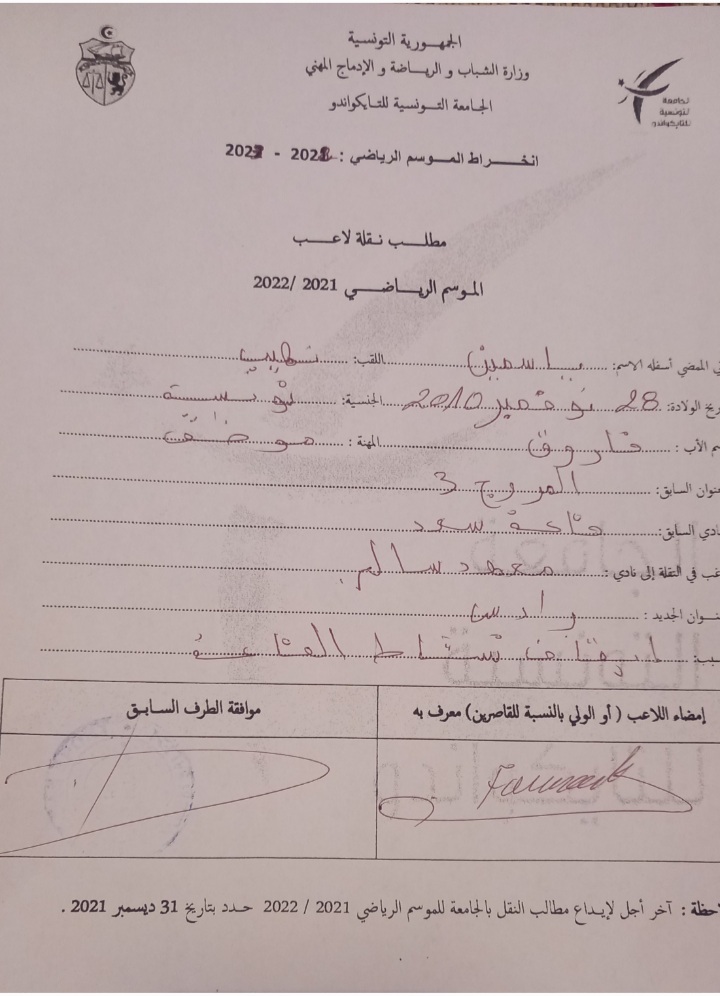 الجمهورية التونسية
وزارة الشباب و الرياضة و الإدماج المهني
الجامعة التونسية للتايكواندو
الجامعة
التونسية
للتايكواندو
انخراط الموسم الرياضي : 2021 - 2022
مطلب نقلة لاعب
الموسم الرياضي 2021 /2022
ني الممضي أسفله الاسم: ياسمين اللقب:
ريخ الولادة: 28 نوفمبر 2010 الجنسية: تونسية
م الأب : فاروق المهنة : موظف
عنوان السابق: المروج 3
نادي السابق: قاعة سعد
غب في النقلة إلى نادي : معهد سالم
عنوان الجديد : رادس
بب: ايقاف نشاط القاعة
إمضاء اللاعب ( أو الولي بالنسبة للقاصرين) معرف به
موافقة الطرف السابق
Farouk
حظة : آخر أجل لإيداع مطالب النقل بالجامعة للموسم الرياضي 2021 / 2022 حدد بتاريخ 31 ديسمبر 2021 .